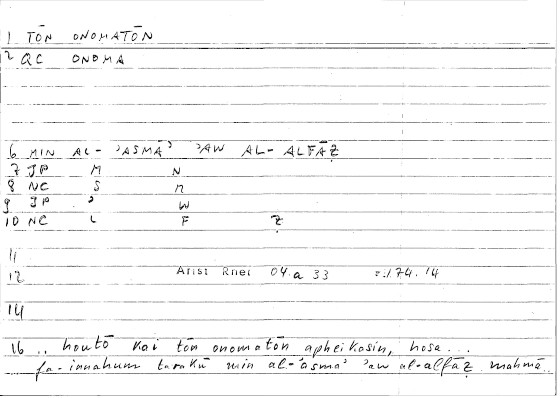 1 TŌN ONOMATŌN
2 QC ONOMA
6 MIN AL-ʾASMĀʾ ʾAW AL-ALFĀẒ
7 JP M N
8 NC S M
9 JP ʾ W
10 NC L F Ẓ
11
12 Arist Rhet 04.a 33 =174.14
14
16 .. houtō kai tōn onomatōn apheikasin, hosa...
fa-innahum tarakū min al-ʾasmāʾ ʾaw al-alfāẓ mahmā..